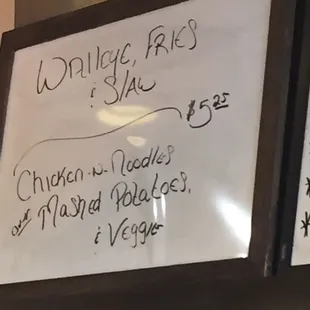 Walleye, Fries
& Slaw
$5.25
Chicken-N-Noodles
over Mashed Potatoes,
& Veggie